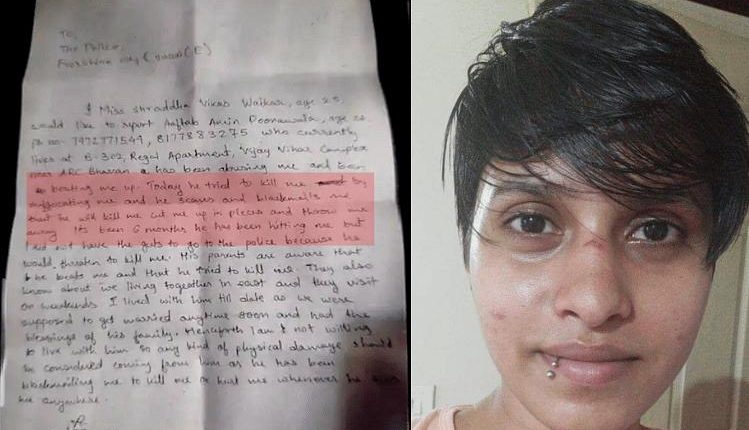 To,
The Police,
I Miss Shraddha Vikas Walkar, age 25,
would like to report Aaftab Amin Poonawala, age
ph no- 7972771549, 8177883275 who currently
lives at B-302, Regal Apartment, Vijay Vihar Complex
has been abusing me and been
beating me up. Today he tried to kill me by
suffocating me and he scares and blackmails me
that he will kill me cut me up in pieces and throw me
away. Its been 6 months he has been hitting me but
I did not have the guts to go to the police because he
would threaten to kill me. His parents are aware that
he beats me and that he tried to kill me. They also
know about we living together in east and they visit
on weekends. I lived with him till date as we were
supposed to get married anytime soon and had the
blessings of his family. Henceforth I am not willing
to live with him so any kind of physical damage should
be considered coming from him as he has been
blackmailing me to kill me or hurt me whenever he
me anywhere.